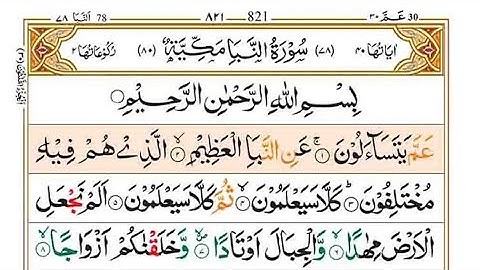 عَمَّ ٣٠ 30 821 ٨٢١ النَّبَا ٧٨ 78
اٰیَاتُهَا ٤٠ (٧٨) سُوْرَةُ النَّبَاِ مَكِّیَّةٌ (٨٠) رُكُوْعَاتُهَا ٢
بِسْمِ اللّٰهِ الرَّحْمٰنِ الرَّحِیْمِ
عَمَّ یَتَسَآءَلُوْنَ ۚ﴿١﴾ عَنِ النَّبَاِ الْعَظِیْمِ ۙ﴿٢﴾ الَّذِیْ هُمْ فِیْهِ
مُخْتَلِفُوْنَ ؕ﴿٣﴾ كَلَّا سَیَعْلَمُوْنَ ۙ﴿٤﴾ ثُمَّ كَلَّا سَیَعْلَمُوْنَ ﴿٥﴾ اَلَمْ نَجْعَلِ
الْاَرْضَ مِهٰدًا ۙ﴿٦﴾ وَّ الْجِبَالَ اَوْتَادًا ﴿٧﴾ وَّ خَلَقْنٰكُمْ اَزْوَاجًا ۙ﴿٨﴾